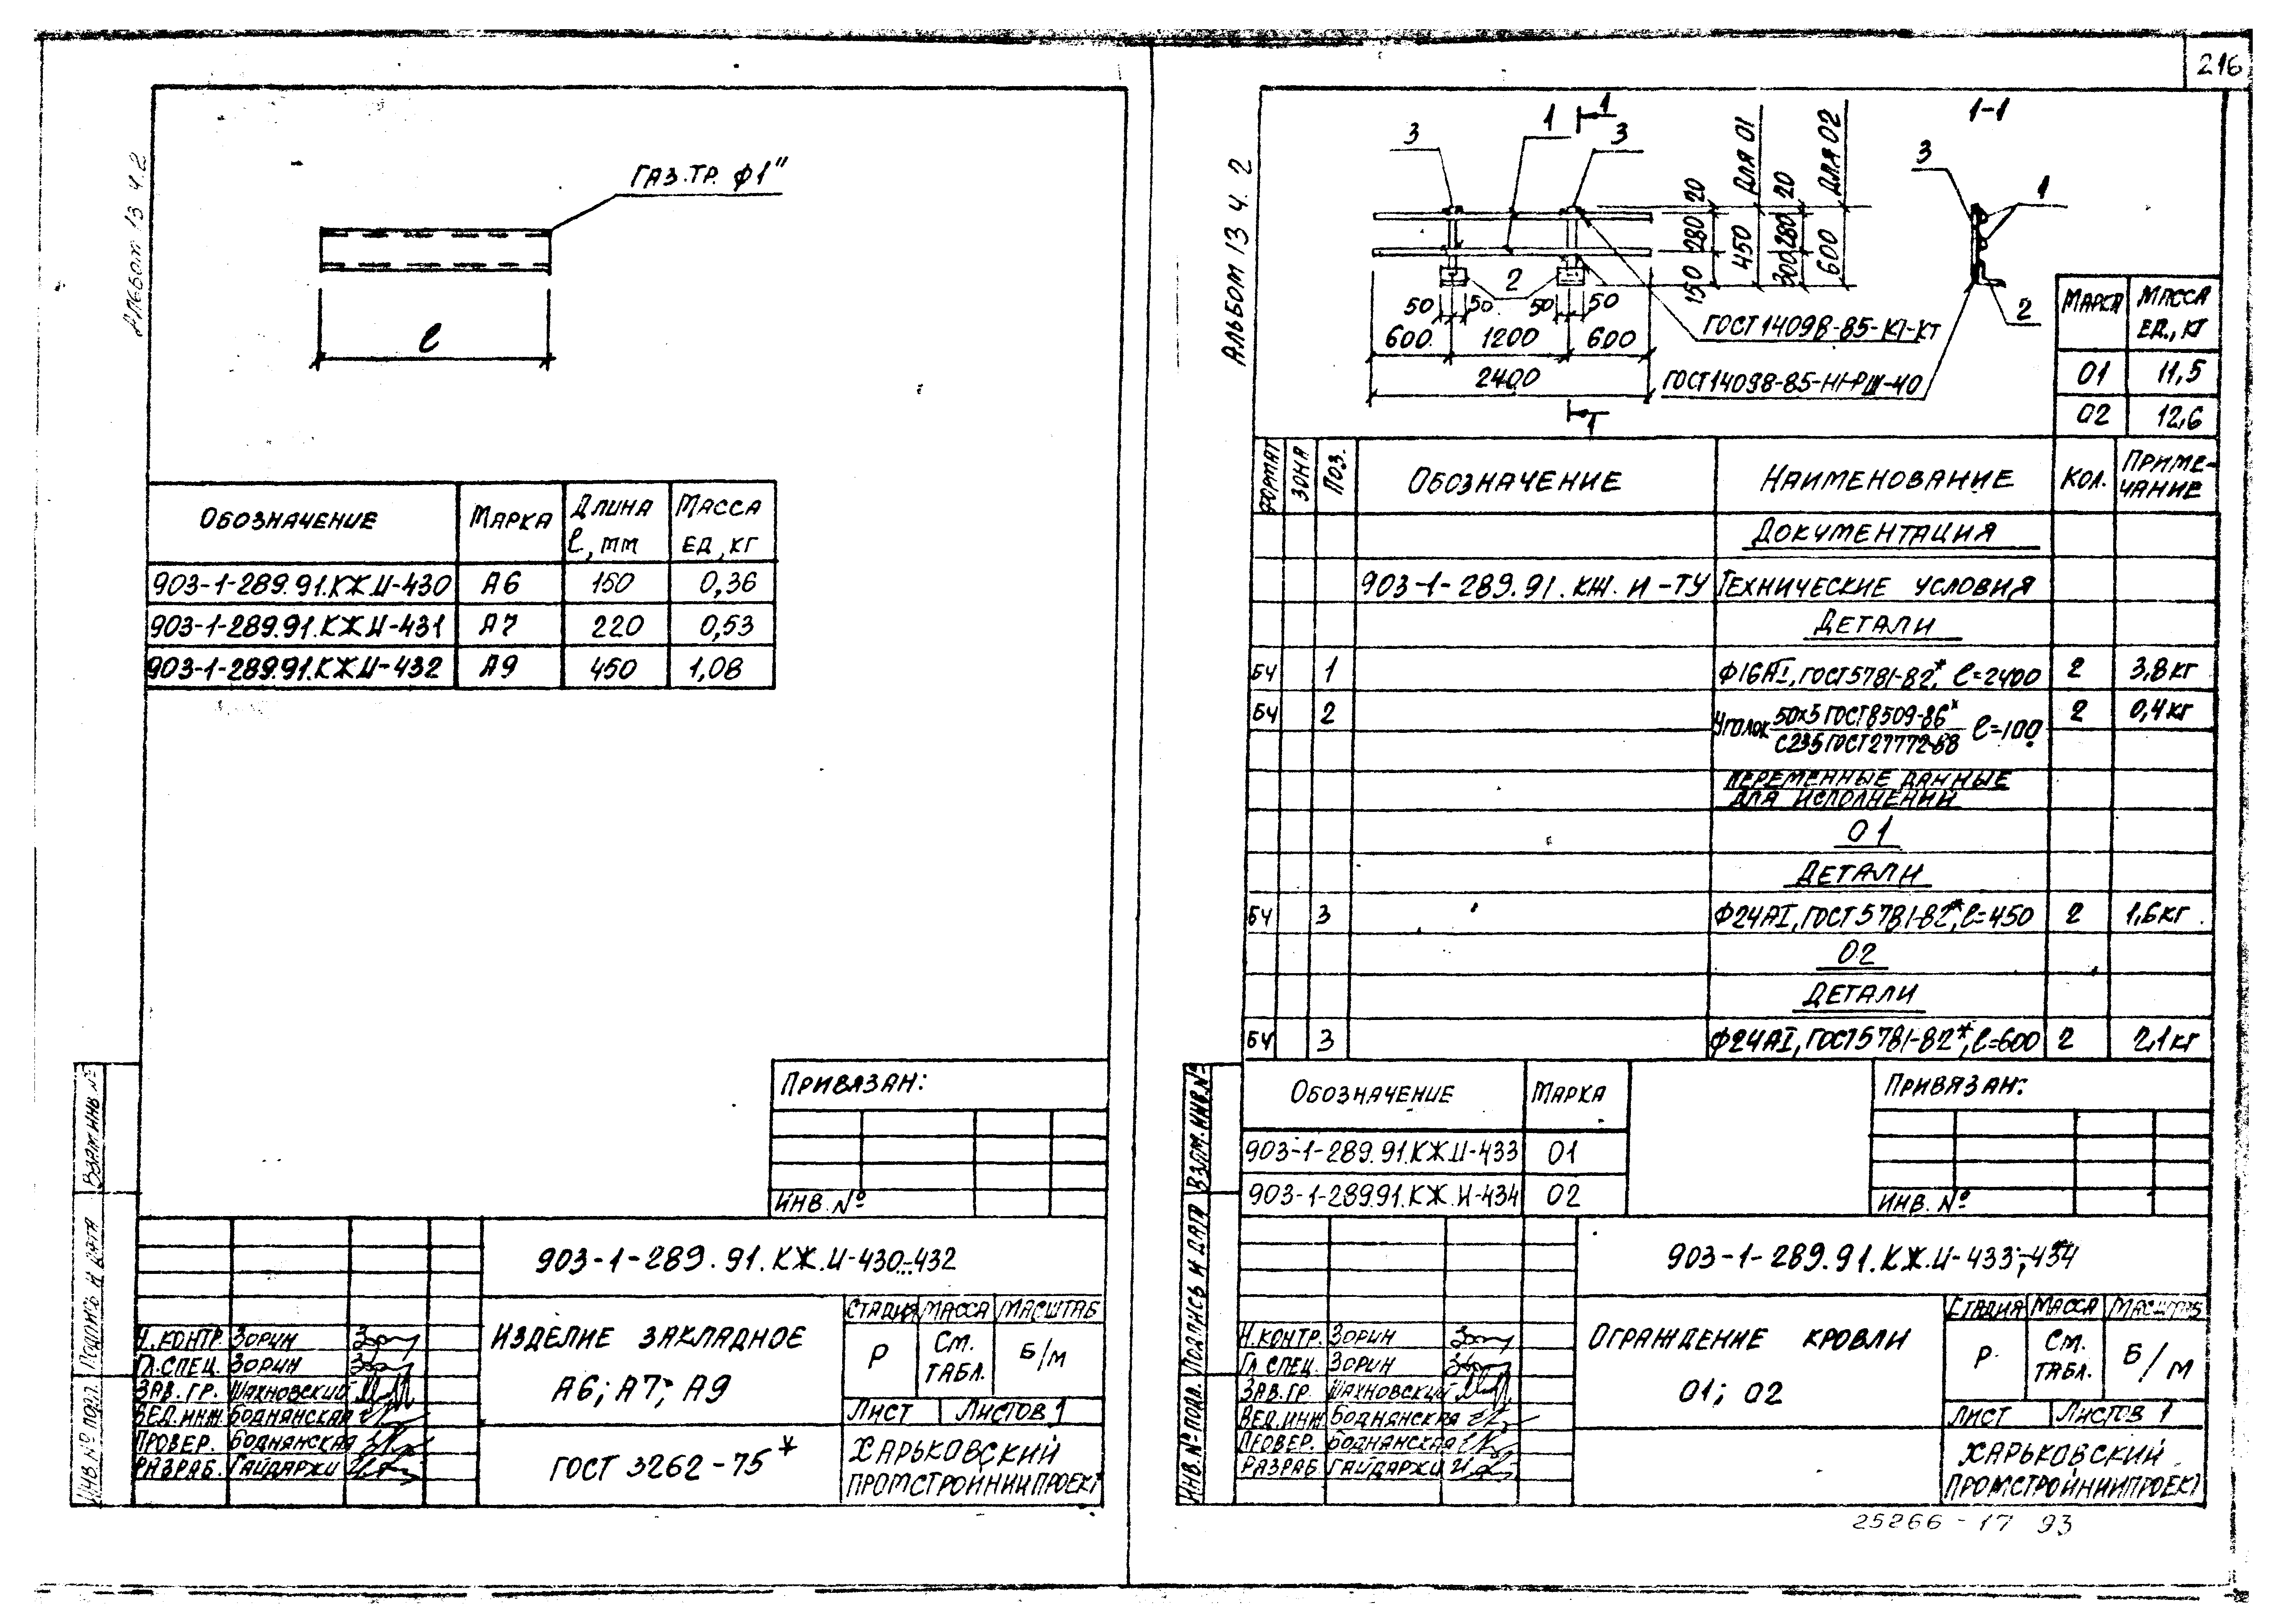 216
Альбом 13 ч.2
ГАЗ.ТР. ф1"
ℓ
ОБОЗНАЧЕНИЕ МАРКА ДЛИНА ℓ, мм МАССА ЕД, КГ
903-1-289.91.КЖ.И-430 А6 150 0,36
903-1-289.91.КЖ.И-431 А7 220 0,53
903-1-289.91.КЖ.И-432 А9 450 1,08
ПРИВЯЗАН:
ИНВ. №
903-1-289.91.КЖ.И-430...432
ИЗДЕЛИЕ ЗАКЛАДНОЕ
А6; А7; А9
СТАДИЯ МАССА МАСШТАБ
Р СМ. ТАБЛ. Б/М
ЛИСТ ЛИСТОВ 1
Н.КОНТР. ЗОРИН
ГЛ.СПЕЦ. ЗОРИН
ЗАВ.ГР. ШАХНОВСКИЙ
ВЕД.ИНЖ БОДНЯНСКАЯ
ПРОВЕР. БОДНЯНСКАЯ
РАЗРАБ. ГАЙДАРЖИ
ГОСТ 3262-75*
ХАРЬКОВСКИЙ
ПРОМСТРОЙНИИПРОЕКТ
ВЗАМ ИНВ №
ПОДПИСЬ И ДАТА
ИНВ.№ ПОДЛ.
АЛЬБОМ 13 Ч. 2
1-1
3 1 3 1
2
3 1
2
1
20 280 150
450 ДЛЯ 01
20 280 300
600 ДЛЯ 02
50 50 50 50
600 1200 600
2400
ГОСТ 14098-85-К1-КТ
ГОСТ 14098-85-Н1-РШ-40
МАРКА МАССА ЕД., КГ
01 11,5
02 12,6
ФОРМАТ ЗОНА ПОЗ. ОБОЗНАЧЕНИЕ НАИМЕНОВАНИЕ КОЛ. ПРИМЕ-ЧАНИЕ
ДОКУМЕНТАЦИЯ
903-1-289.91.КЖ.И-ТУ ТЕХНИЧЕСКИЕ УСЛОВИЯ
ДЕТАЛИ
БЧ 1 Ф16АI, ГОСТ 5781-82*, ℓ=2400 2 3,8 кг
БЧ 2 Уголок 50х5 ГОСТ 8509-86* ℓ=100 2 0,4 кг
С235 ГОСТ 27772-88
ПЕРЕМЕННЫЕ ДАННЫЕ
ДЛЯ ИСПОЛНЕНИЙ
01
ДЕТАЛИ
БЧ 3 Ф24АI, ГОСТ 5781-82*, ℓ=450 2 1,6 кг
02
ДЕТАЛИ
БЧ 3 Ф24АI, ГОСТ 5781-82*, ℓ=600 2 2,1 кг
ОБОЗНАЧЕНИЕ МАРКА
903-1-289.91.КЖ.И-433 01
903-1-28991.КЖ.И-434 02
ПРИВЯЗАН:
ИНВ. №
903-1-289.91.КЖ.И-433;-434
ОГРАЖДЕНИЕ КРОВЛИ
01; 02
СТАДИЯ МАССА МАСШТАБ
Р СМ. ТАБЛ. Б/М
ЛИСТ ЛИСТОВ 1
Н.КОНТР. ЗОРИН
ГЛ.СПЕЦ. ЗОРИН
ЗАВ.ГР. ШАХНОВСКИЙ
ВЕД.ИНЖ БОДНЯНСКАЯ
ПРОВЕР. БОДНЯНСКАЯ
РАЗРАБ ГАЙДАРЖИ
ХАРЬКОВСКИЙ
ПРОМСТРОЙНИИПРОЕКТ
ВЗАМ.ИНВ.№
ПОДПИСЬ И ДАТА
ИНВ.№ ПОДЛ.
25266-17 93